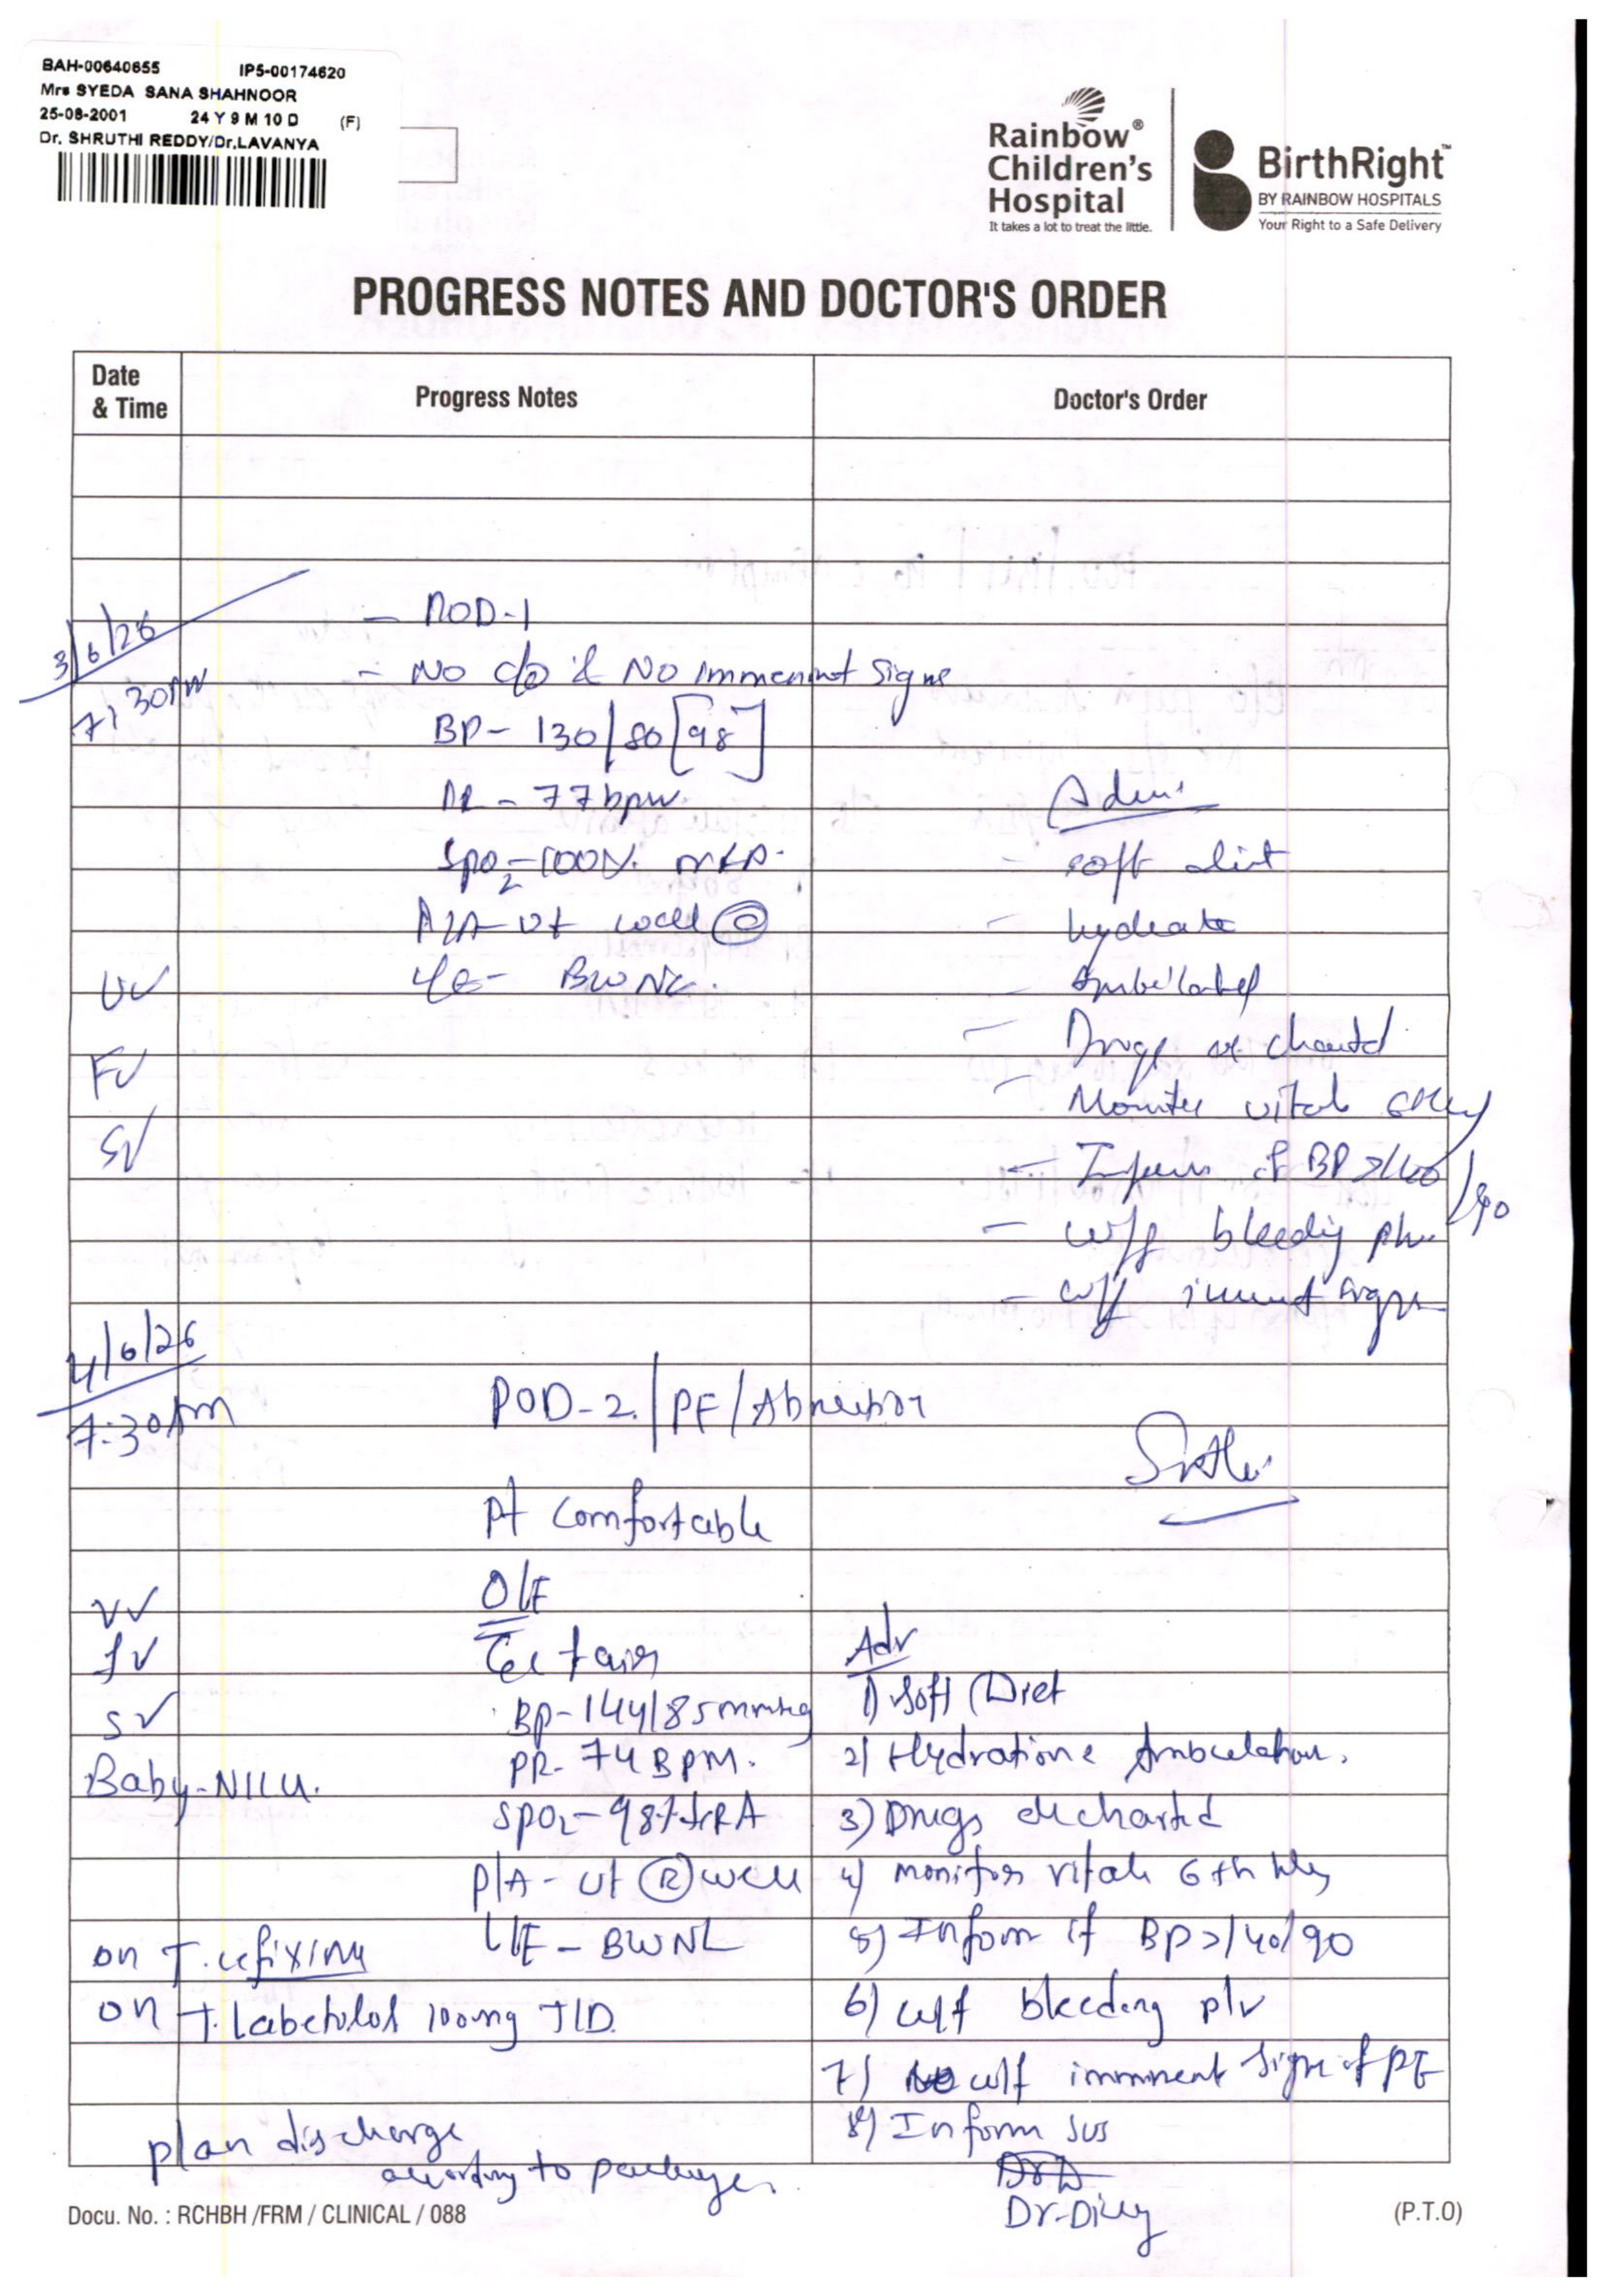 BAH-00640655 IP5-00174620
Mrs SYEDA SANA SHAHNOOR
25-08-2001 24 Y 9 M 10 D (F)
Dr. SHRUTHI REDDY/Dr.LAVANYA
Rainbow®
Children's
Hospital
It takes a lot to treat the little.
BirthRight™
BY RAINBOW HOSPITALS
Your Right to a Safe Delivery
PROGRESS NOTES AND DOCTOR'S ORDER
Date & Time Progress Notes Doctor's Order
3/6/26 - POD-1
7:30PM - No c/o & No immenent signs
BP- 130/80 [98]
PR - 77bpm
SpO2-100%
P/A- Ut well
- soft diet
- hydrate
UV BWNL.
FV - Drugs as charted
- Monitor vitals 6th hly
SV - Inform if BP >140/90
- w/f bleeding p/v
- w/f signs
4/6/26
7:30pm POD-2 / PE / Abruption
Pt comfortable
O/E
VV
FV Adv
BP-144/85mmHg 1) Soft Diet
SV
PR- 74 BPM. 2) Hydration & Ambulation.
Baby-NICU.
SPO2-98% RA 3) Drugs as charted
P/A - Ut (R) well 4) monitor vitals 6th hly
L/E - BWNL 5) Inform if BP >140/90
on T. cefixime
on T. Labetolol 100mg TID. 6) w/f bleeding p/v
7) w/f imminent signs of PE
8) Inform SOS
plan discharge
according to package.
Docu. No. : RCHBH /FRM / CLINICAL / 088
(P.T.O)